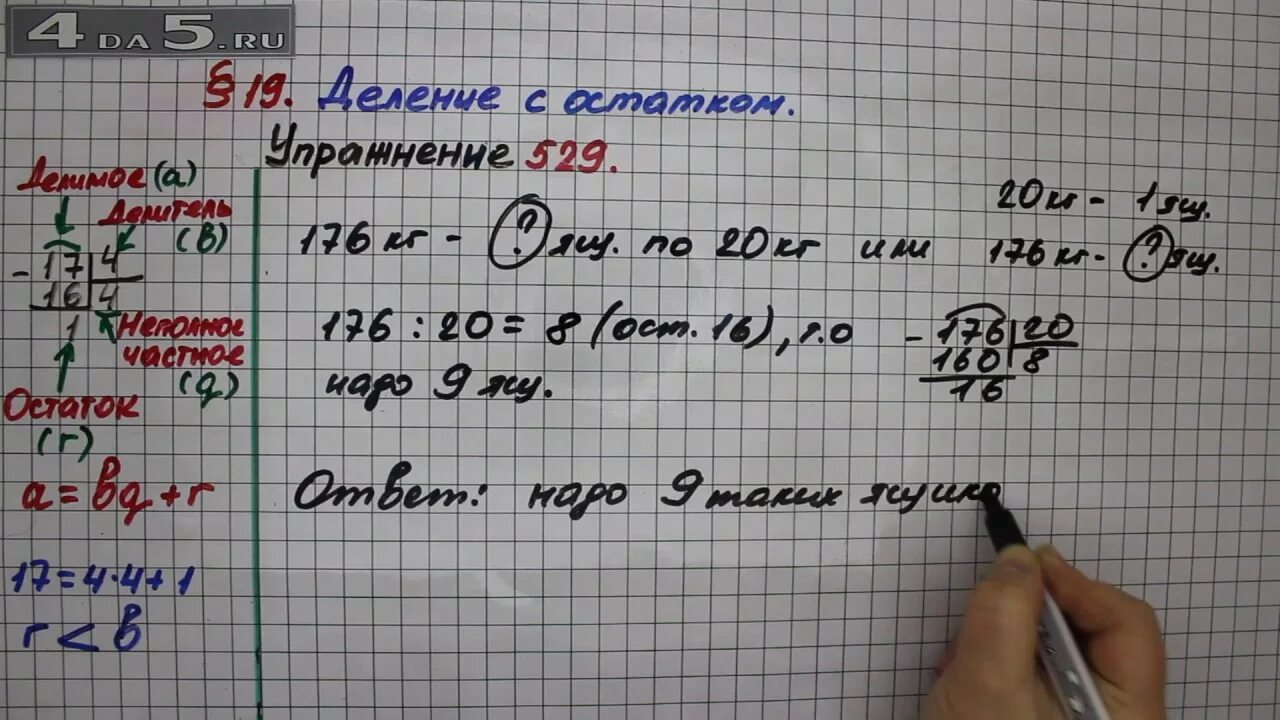 4DA5.RU
§ 19. Деление с остатком.
Упражнение 529.
Делимое (a)
Делитель
(b)
- 17 4
16 4
1
Неполное
частное
(q)
Остаток
(r)
a = bq + r
17 = 4·4 + 1
r < b
176 кг - ? ящ. по 20 кг или
20 кг - 1 ящ.
176 кг - ? ящ.
176 : 20 = 8 (ост. 16), т.о
надо 9 ящ.
- 176 20
160 8
16
Ответ: надо 9 таких ящико